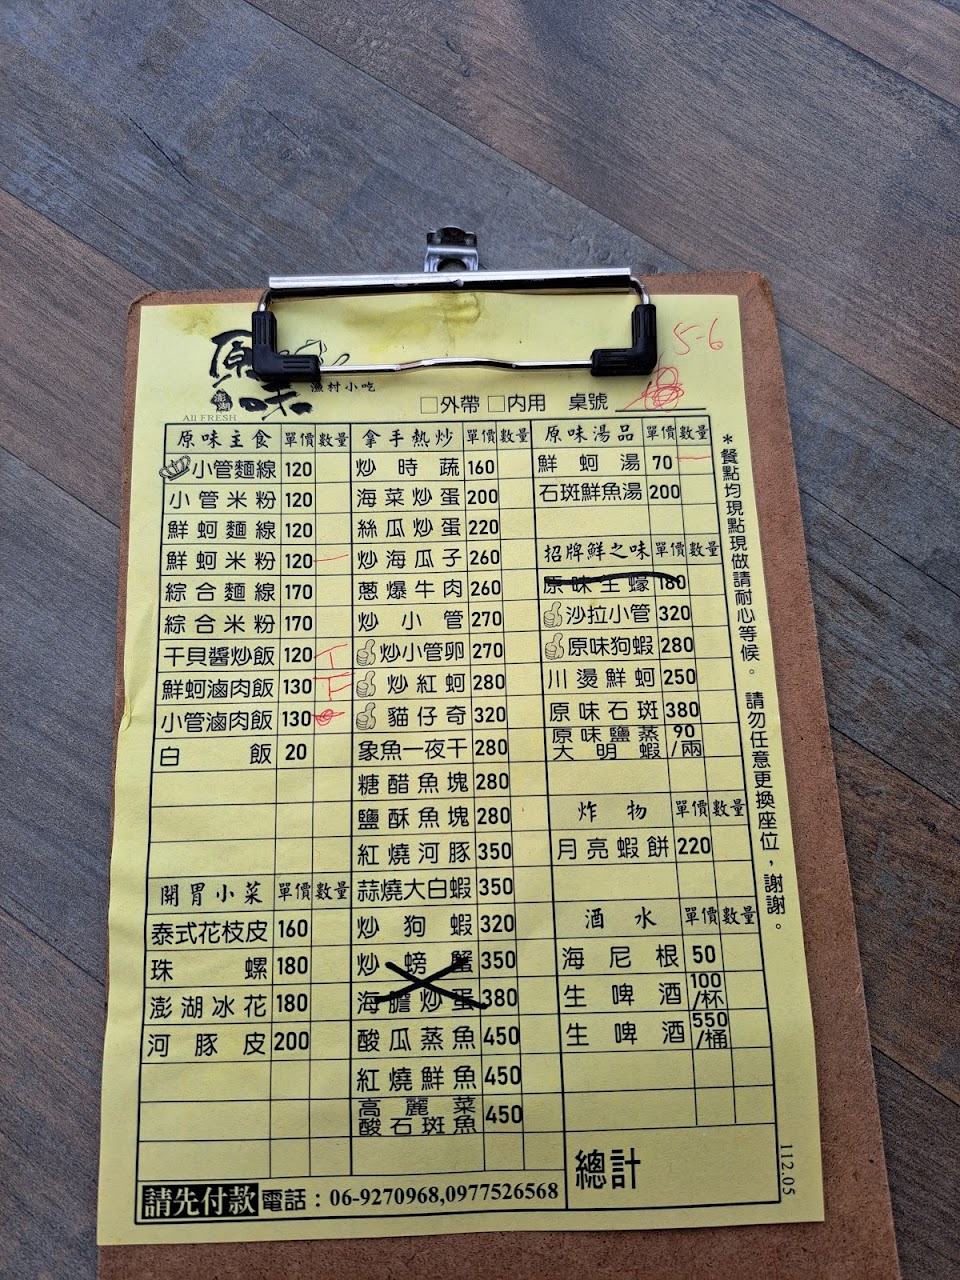 5-6
原味
澎湖
漁村小吃
All FRESH
□外帶 □內用 桌號
原味主食 單價 數量
小管麵線 120
小管米粉 120
鮮蚵麵線 120
鮮蚵米粉 120 一
綜合麵線 170
綜合米粉 170
干貝醬炒飯 120 T
鮮蚵滷肉飯 130 下
小管滷肉飯 130
白飯 20
開胃小菜 單價 數量
泰式花枝皮 160
珠螺 180
澎湖冰花 180
河豚皮 200
拿手熱炒 單價 數量
炒時蔬 160
海菜炒蛋 200
絲瓜炒蛋 220
炒海瓜子 260
蔥爆牛肉 260
炒小管 270
炒小管卵 270
炒紅蚵 280
貓仔奇 320
象魚一夜干 280
糖醋魚塊 280
鹽酥魚塊 280
紅燒河豚 350
蒜燒大白蝦 350
炒狗蝦 320
炒螃蟹 350
海膽炒蛋 380
酸瓜蒸魚 450
紅燒鮮魚 450
高麗菜
酸石斑魚 450
原味湯品 單價 數量
鮮蚵湯 70 一
石斑鮮魚湯 200
招牌鮮之味 單價 數量
原味生蠔 180
沙拉小管 320
原味狗蝦 280
川燙鮮蚵 250
原味石斑 380
原味鹽蒸 90
大明蝦 /兩
炸物 單價 數量
月亮蝦餅 220
酒水 單價 數量
海尼根 50
生啤酒 100/杯
生啤酒 550/桶
總計
請先付款 電話：06-9270968,0977526568
*餐點均現點現做請耐心等候。請勿任意更換座位，謝謝。
112.05